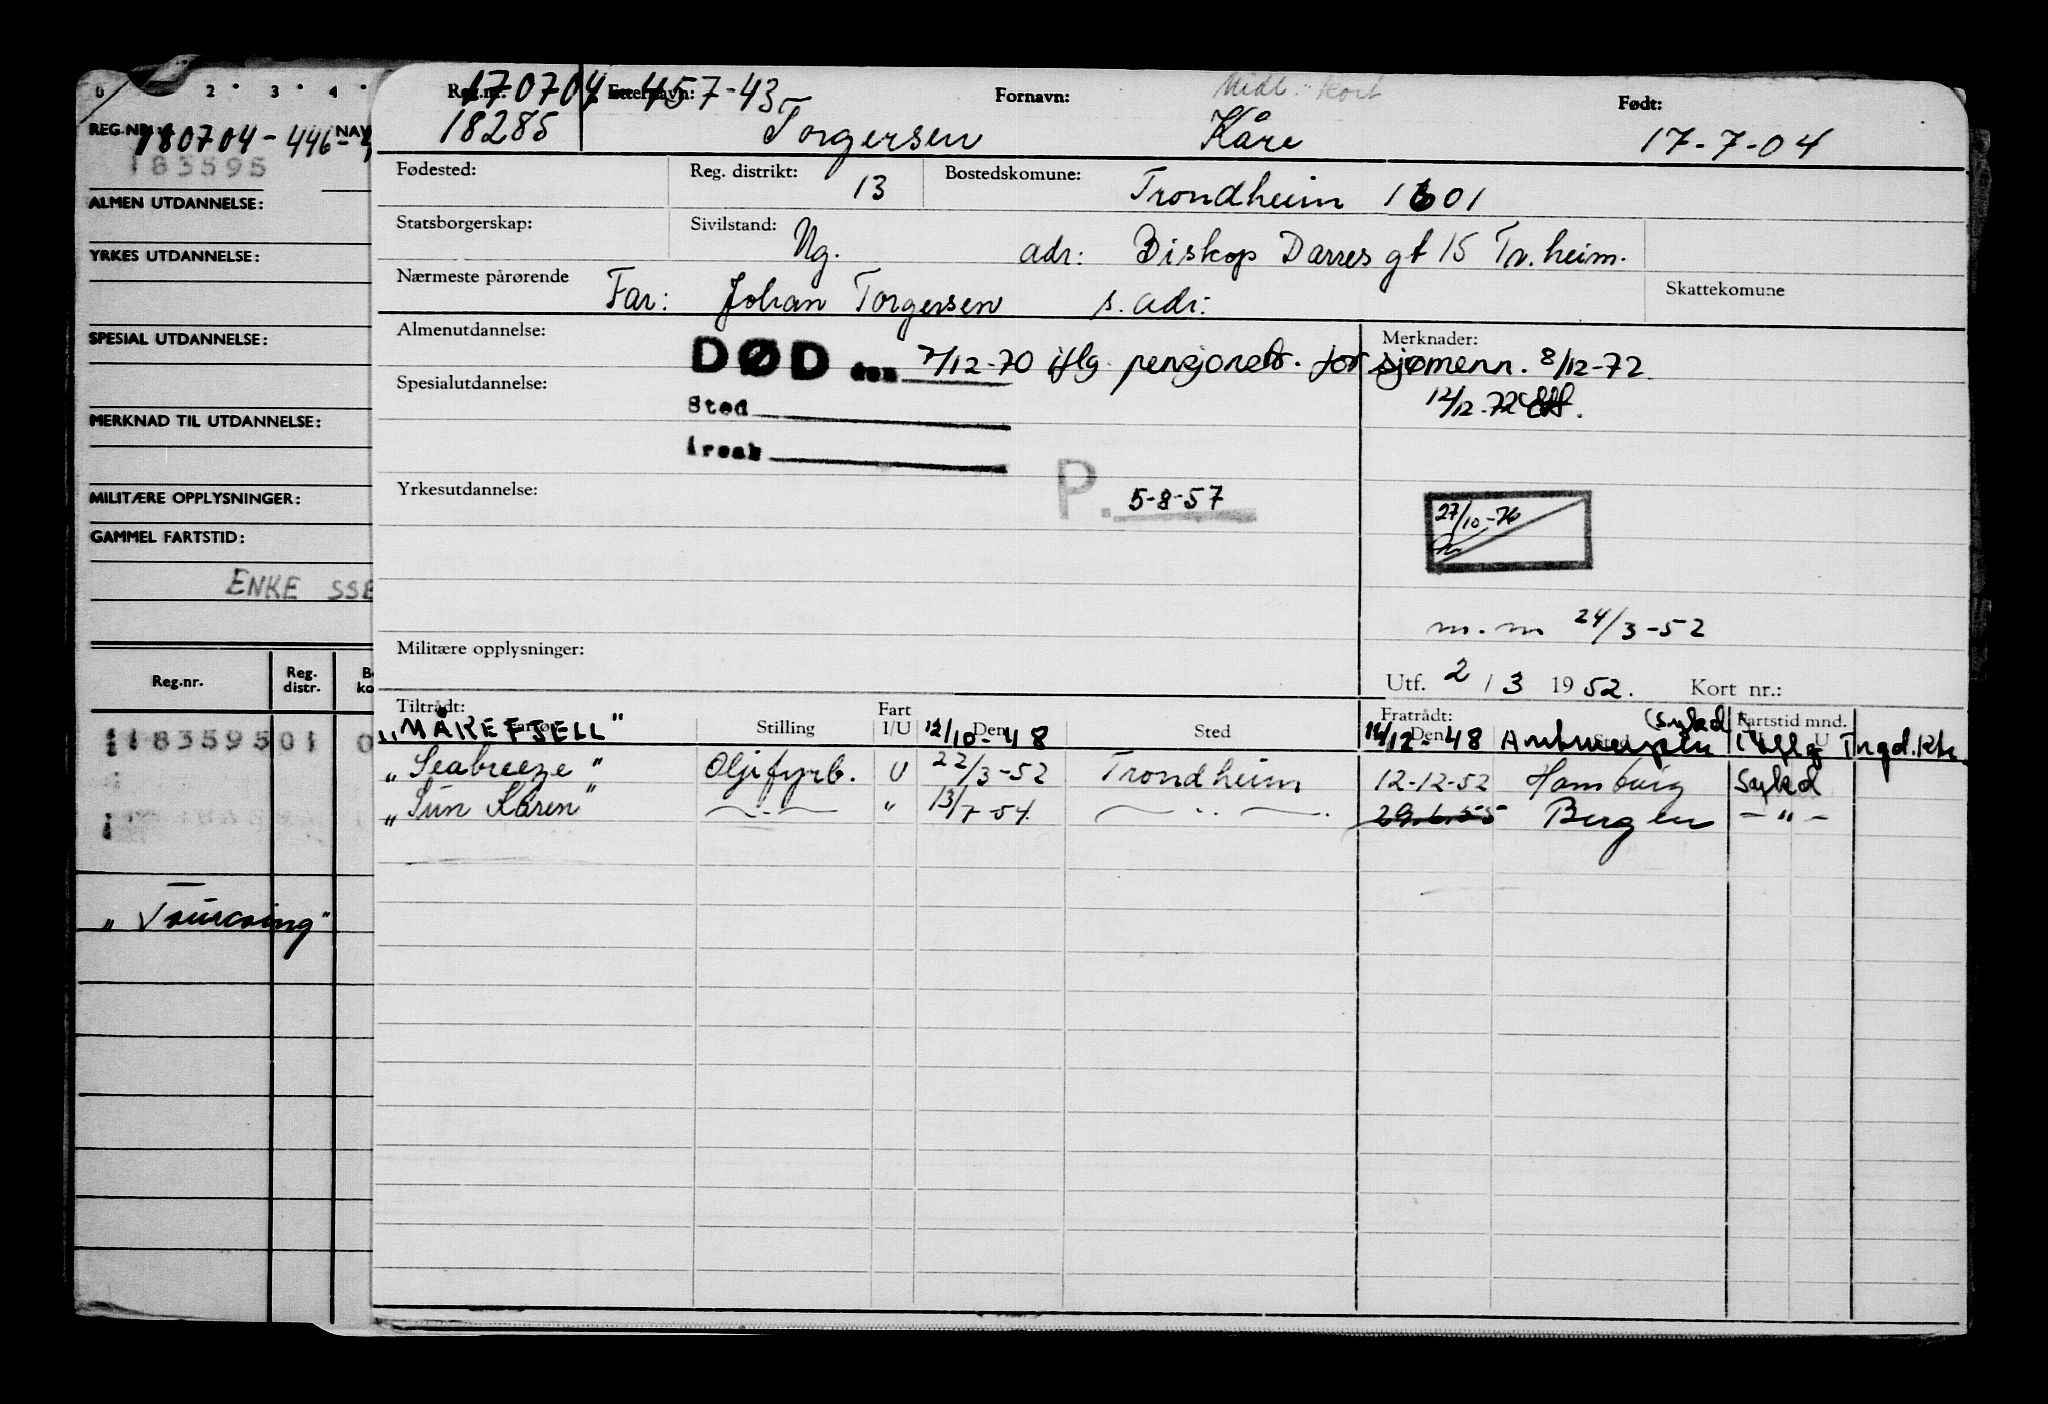 0 2 3 4
REG.NR.: 180704-446- NAV
183595
ALMEN UTDANNELSE:
YRKES UTDANNELSE:
SPESIAL UTDANNELSE:
MERKNAD TIL UTDANNELSE:
MILITÆRE OPPLYSNINGER:
GAMMEL FARTSTID:
ENKE SSE
Reg.nr. Reg. distr.
183595 01 0
"Tourcoing"
Midl. Kort
Reg.nr. 170704-457-43 Etternavn: Fornavn: Født:
18285 Torgersen Kåre 17-7-04
Fødested: Reg. distrikt: 13 Bostedskomune: Trondheim 1601
Statsborgerskap: Sivilstand: Ug. adr: Biskop Darres gt 15 Tr.heim.
Nærmeste pårørende Far: Johan Torgersen s. adr. Skattekomune
Almenutdannelse: Merknader:
DØD den 7/12-70 iflg. pensjonstr. for sjømenn. 8/12-72
Spesialutdannelse: 12/12-72
Sted
Årsak
Yrkesutdannelse: P. 5-8-57
27/10-76
m.m 24/3-52
Militære opplysninger:
Utf. 2/3 1952. Kort nr.:
Tiltrådt: Stilling Fart I/U Den Sted Fratrådt: Den Sted Fartstid mnd. U
"MÅKEFJELL" 12/10-48 /12-48 Antwerpen (sykd) iflg Trgd.Ktr.
"Seabreeze" Oljefyrb. U 22/3-52 Trondheim 12-12-52 Hamburg Sykd
"Sun Karen" — " — " 13/7-54. — " — 29.6.55 Bergen — " —